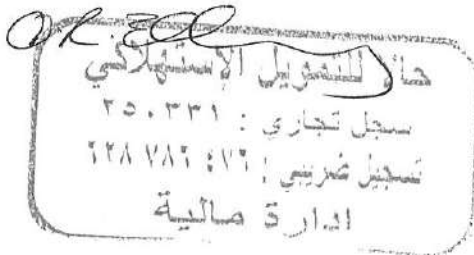 حالا للتمويل الإستهلاكي
سجل تجاري : ٢٥٠٣٣١
تسجيل ضريبي :
ادارة مالية